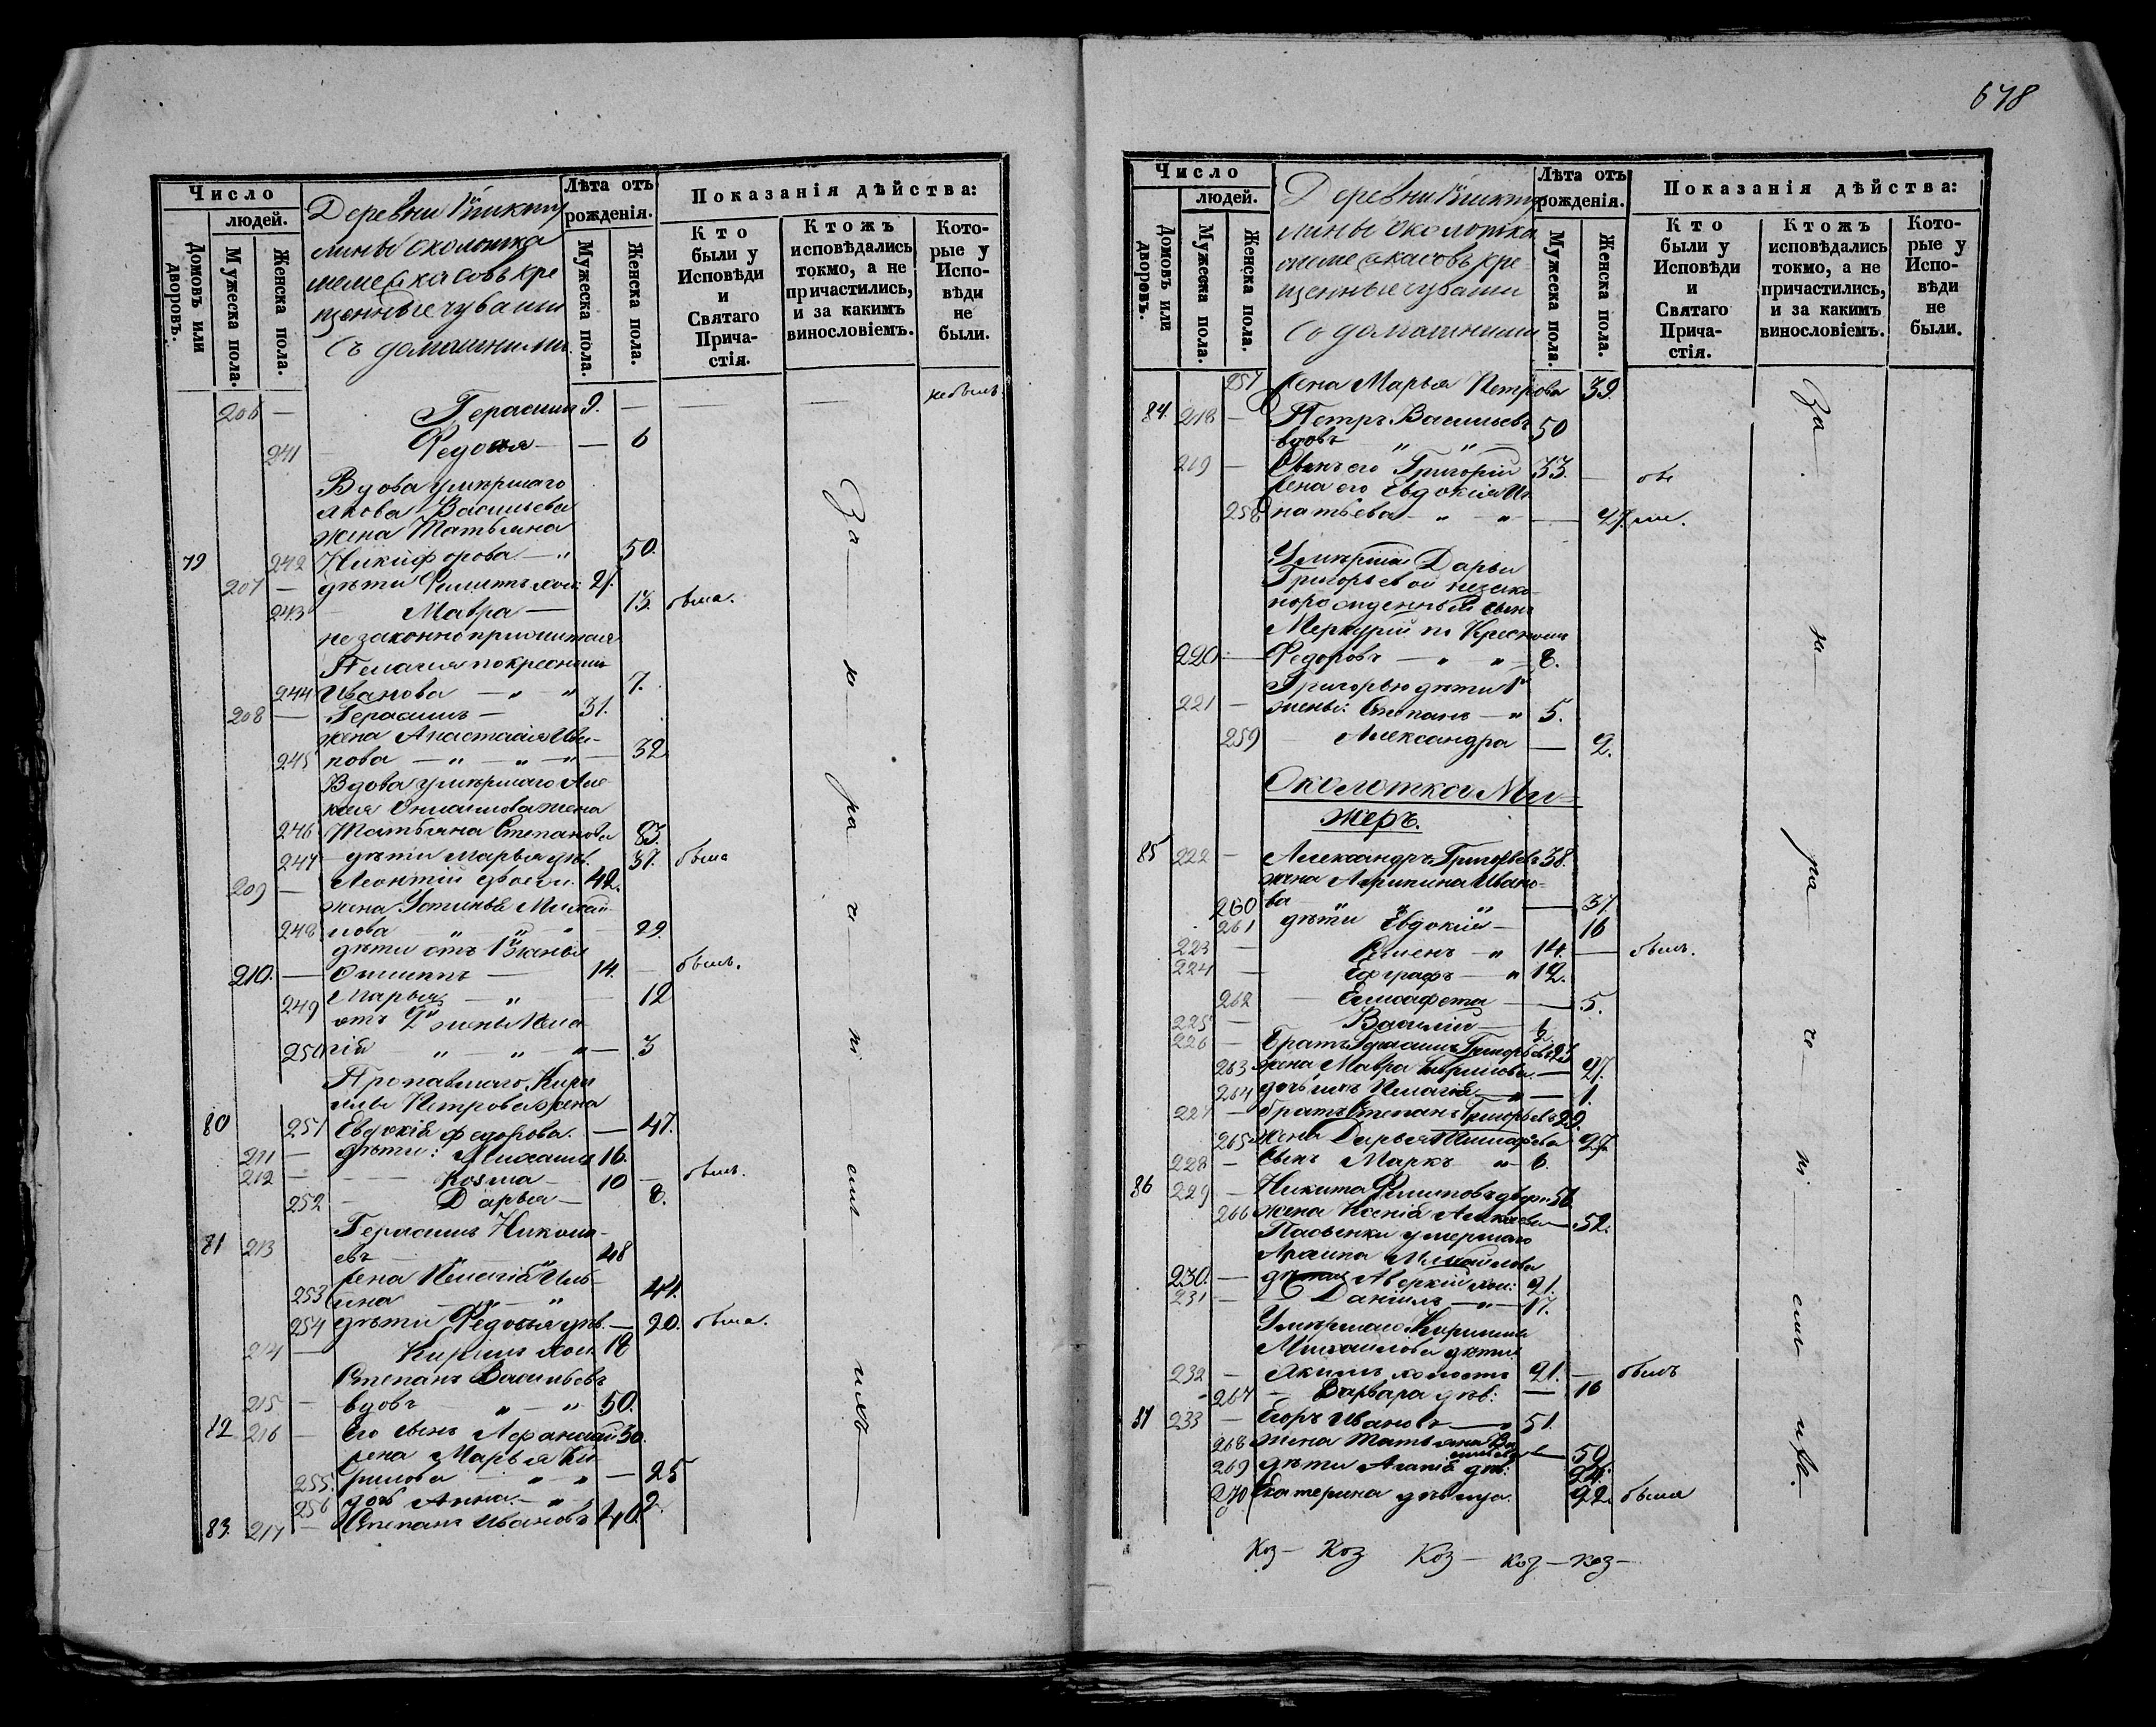 678
Число
людей.
Домовъ или дворовъ.
Мужеска пола.
Женска пола.
Деревни
лины околотка
касовъ кре
щенные чуваши
съ домашними.
Лѣта отъ
рожденія.
Мужеска пола.
Женска пола.
Показанія дѣйства:
Кто были у Исповѣди и Святаго Прича-стія.
Ктожъ исповѣдались токмо, а не причастились, и за какимъ винословіемъ.
Кото-рые у Испо-вѣди не были.
206 — Герасимъ 9. — — — небылъ
241 Федосья — — 6
Вдова умершаго
Якова Васильева
жена Татьяна
79 242 Никифорова — " 50.
207 — дѣти Филиппъ хол: 21.
243 Мавра — 13. была.
незаконно прижитая
Пелагия по крестному
244 Иванова — " — " 7.
208 — Герасимъ — 31.
жена Анастасія Ива-
245 нова — " — " — " — 32
Вдова умершаго Але
жена
246 Татьяна Степанова 83.
247 дѣти Марья дѣв. 37. была
209 — Леонтий 42.
жена Устинья Михай-
248 лова " " " 29.
дѣти отъ 1й жены
210. — Филиппъ — 14. — былъ.
249 Марья — " — 12
отъ 2й жены Пела
250 гія — " — " — " — 3
Пропавшаго Кири
лы Петрова жена
80 251 Евдокія Федорова. — 47.
211 — дѣти: Михаилъ 16.
212 — Козма — 10 — былъ.
252 — Дарья — 8.
Герасимъ Никола-
81 213 евъ — " — " 48
жена Пелагія Иль-
253 ина — " — " 44.
254 дѣти Федосья дѣв. — 20. была.
214 — Кирилъ хол. 18
Степанъ Васильевъ
215 — вдовъ " — " 50.
82 216 — Его сынъ Афанасий 30.
жена Марья Ки-
255. рилова — " — " — 25
256 дочь Анна. — " 2.
83. 217 — Степанъ Ивановъ 40.
За — не — ра — че — ні — емъ — ихъ —
Число
людей.
Домовъ или дворовъ.
Мужеска пола.
Женска пола.
Деревни
лины околотка
касовъ кре-
щенные чуваши
съ домашними
Лѣта отъ
рожденія.
Мужеска пола.
Женска пола.
Показанія дѣйства:
Кто были у Исповѣди и Святаго Прича-стія.
Ктожъ исповѣдались токмо, а не причастились, и за какимъ винословіемъ.
Кото-рые у Испо-вѣди не были.
257 жена Марья Петрова 39.
84. 218 — Петръ Васильевъ
вдовъ " " — 50
219 — Сынъ его Григорій 33. —
жена его Евдокія Иг
258 натьева — " — " — 27.
Умершей Дарьи
Григорьевой незако
норожденный сынъ
Меркурій по Крестному
220. — Федоровъ — " — " — 8.
Григорью дѣти 1й
221 — жены: Степанъ — " 5.
259 Александра — 2.
Околотка Ми-
жеръ.
85 222 — Александръ Григорьевъ 38.
жена Агрипина Ивано-
260 ва — " " — 37
261 дѣти Евдокія — 16
223 — " 14. — былъ.
224 — Евграфъ — " 12.
262 — Елисафета — 5.
225 — Василій —
226 — Братъ Герасимъ Григорьевъ 23
263 жена Мавра — 27.
264 дочь ихъ Пелагія — " — 1.
227 — братъ Степанъ Григорьевъ 29.
265 жена Дарья 27.
228 — сынъ Маркъ " — 6.
86 229 — Никита Филиповъ 56
266 жена Ксенія — 52.
Пасынки умершаго
Михайлова
230. — дѣти Аверкій хол: 21.
231 — Даніилъ — " — 17.
Умершаго Кирилла
Михайлова дѣти
232 — Якимъ холостъ 21. — былъ
267 — Варвара дѣв: — 16
87 233 — Егоръ Ивановъ — " 51.
268 жена Татьяна Ва
сильева — 50
269 дѣти Агапія дѣв: 24.
270 Екатерина дѣвица. 22. была
За — не — ра — че — ні — емъ —
Коз — Коз Коз — Коз — Коз —